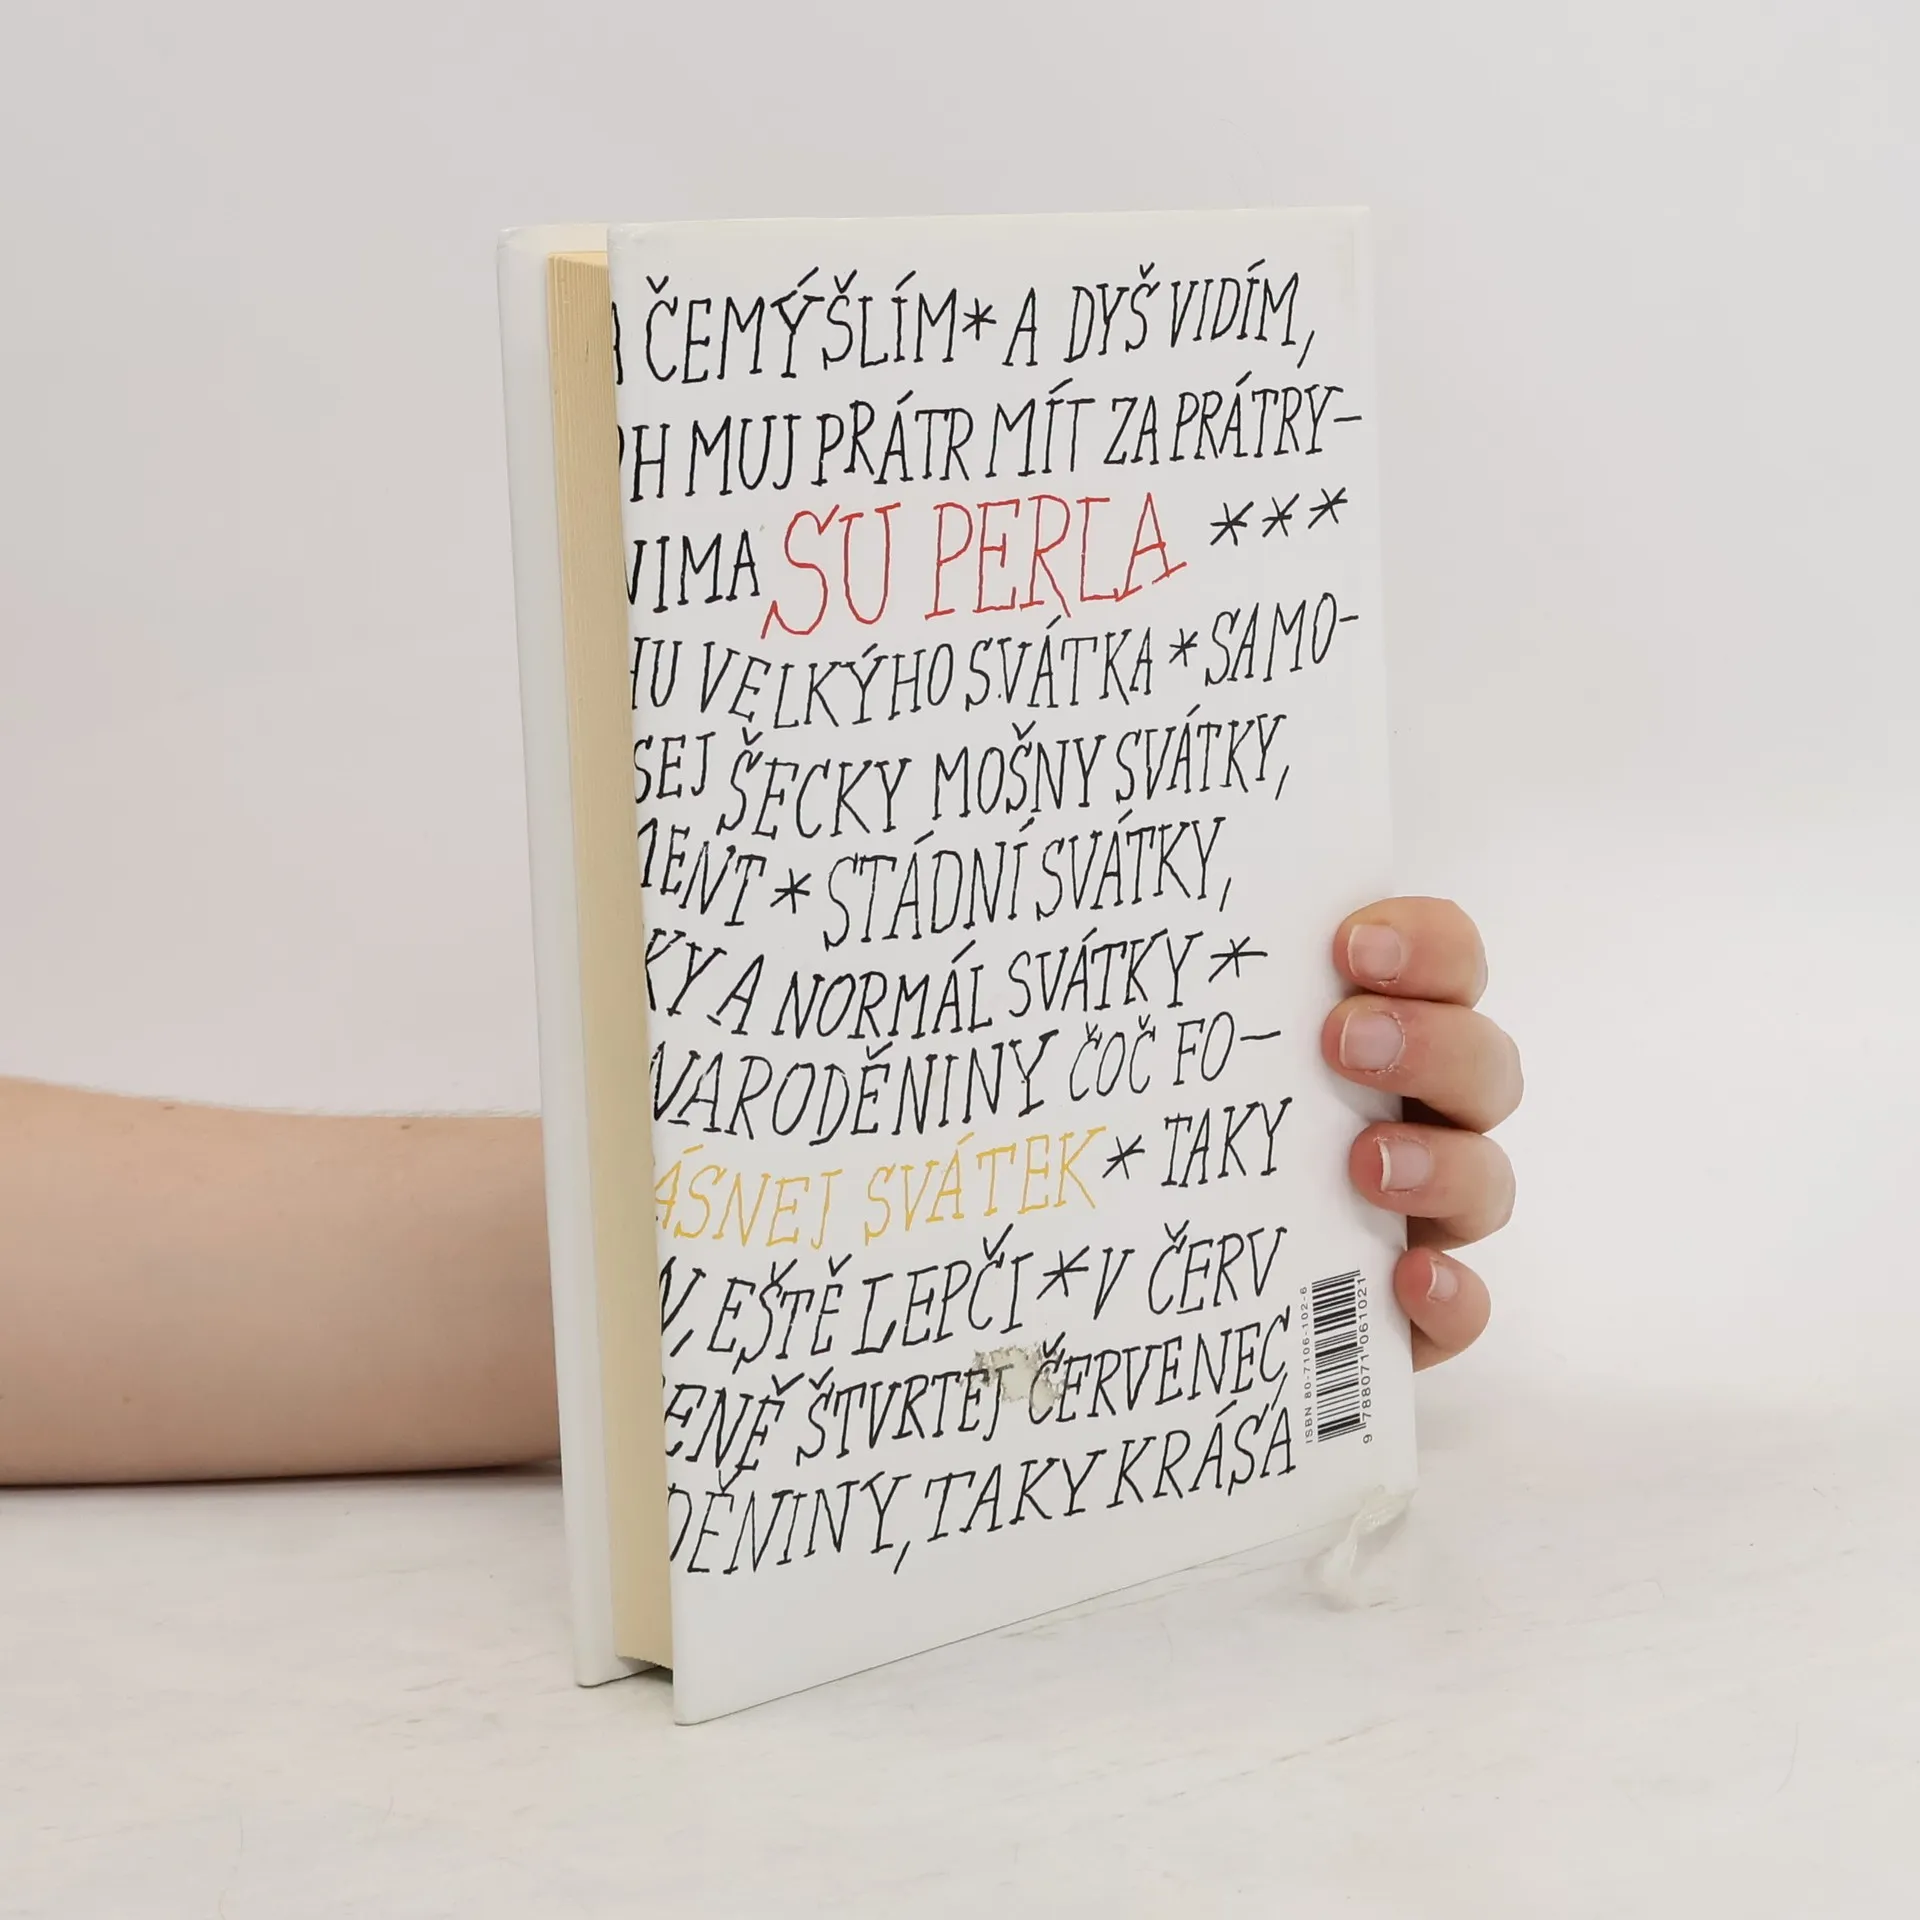 ČEMÝŠLÍM * A DYŠ VIDÍM,
H MUJ PRÁTR MÍT ZA PRÁTRY–
VIMA SU PERLA ***
HU VELKÝHO SVÁTKA * SAMO-
SEJ ŠECKY MOŠNY SVÁTKY,
MENT * STÁDNÍ SVÁTKY,
KY A NORMÁL SVÁTKY *
NARODĚNINY ČOČ FO–
ÁSNEJ SVÁTEK * TAKY
N, EŠTĚ LEPČI * V ČERV
ENĚ ŠTVRTEJ ČERVENEC
DĚNINY, TAKY KRÁSÁ
ISBN 80-7106-102-6
9 788071 061021